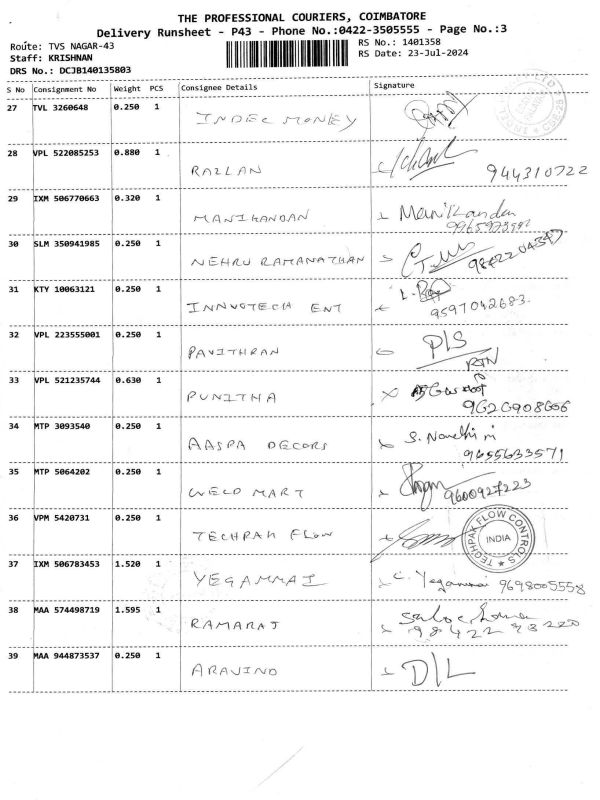 THE PROFESSIONAL COURIERS, COIMBATORE
Delivery Runsheet - P43 - Phone No.:0422-3505555 - Page No.:3
Route: TVS NAGAR-43
RS No.: 1401358
Staff: KRISHNAN
RS Date: 23-Jul-2024
DRS No.: DCJB140135803
S No Consignment No Weight PCS Consignee Details Signature
27 TVL 3260648 0.250 1
INDEC MONEY
28 VPL 522085253 0.880 1
RAZLAN
944310722
29 IXM 506770663 0.320 1
MANIKANDAN Manikandan
30 SLM 350941985 0.250 1
NEHRU RAMANATHAN
31 KTY 10063121 0.250 1
INNVOTECH ENT 9597042683
32 VPL 223555001 0.250 1
PAVITHRAN P/S
33 VPL 521235744 0.630 1
PUNITHA
9626908656
34 MTP 3093540 0.250 1
AASPA DECORS
9655633571
35 MTP 5064202 0.250 1
WELD MART 9600927223
36 VPM 5420731 0.250 1
TECHPAK FLOW
TECHPAX FLOW CONTROLS
INDIA
37 IXM 506783453 1.520 1
YEGAMMAI C. Yegammai 9698005558
38 MAA 574498719 1.595 1
RAMARAJ
39 MAA 944873537 0.250 1
ARAVIND D/L